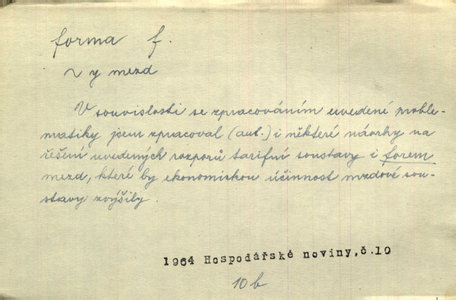 forma f.
~ y mezd
V souvislosti se zpracováním uvedené proble-
matiky jsem zpracoval (aut.) i některé návrhy na
řešení uvedených rozporů tarifní soustavy i forem
mezd, které by ekonomickou účinnost mzdové sou-
stavy zvýšily.
1964 Hospodářské noviny,č.10
10 b